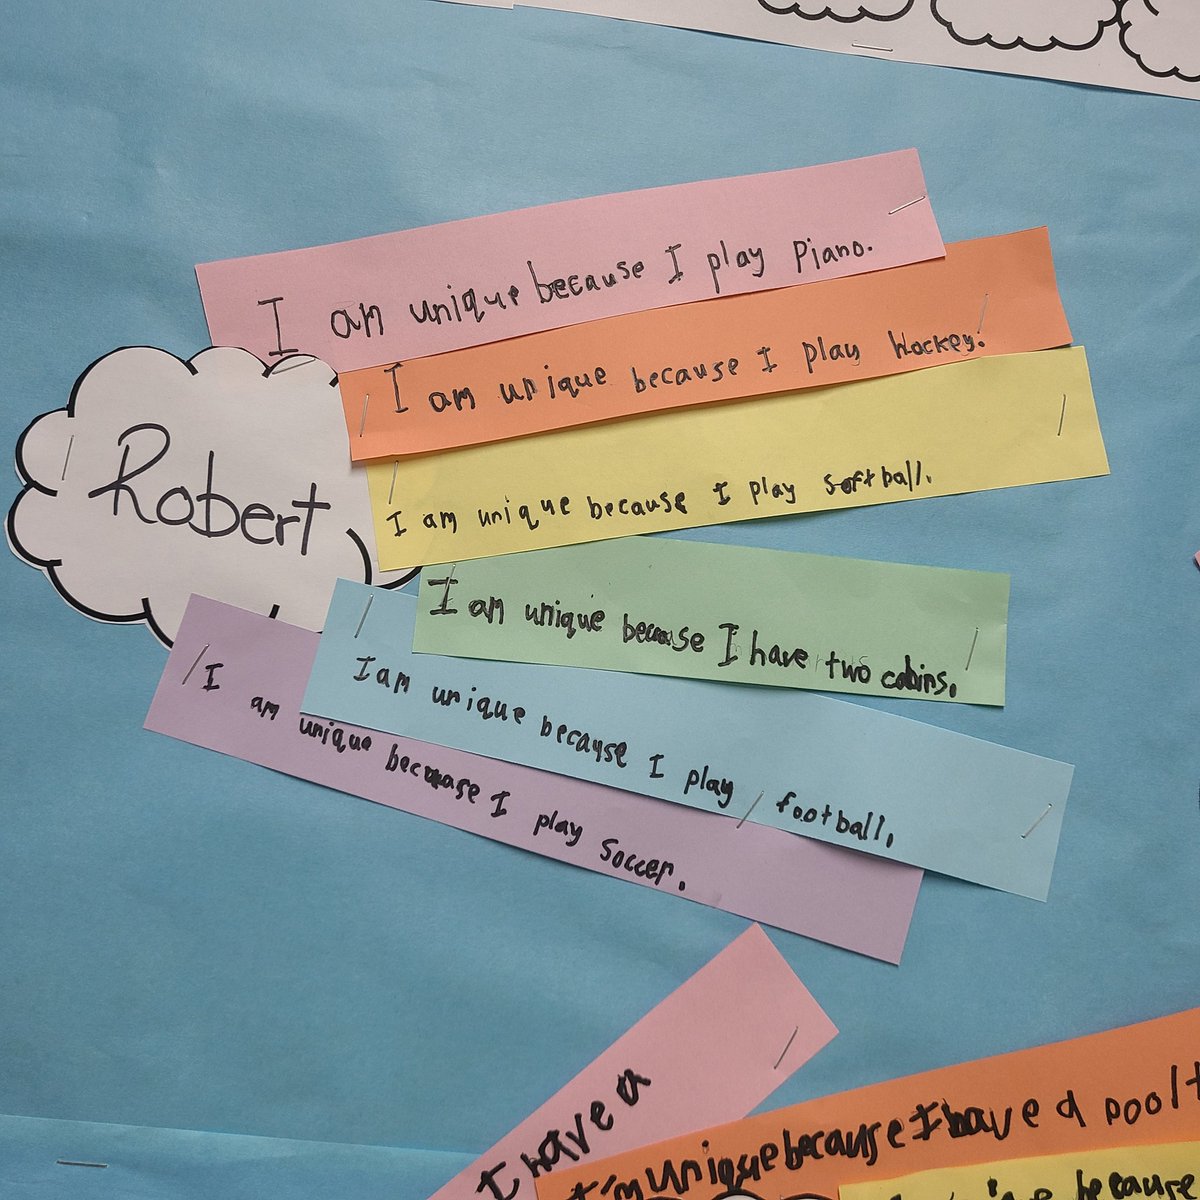 I am unique because I play piano.
I am unique because I play Hockey.
Robert
I am unique because I play softball.
I am unique because I have two cabins.
I am unique because I play football.
I am unique because I play Soccer.
I have a
I'm unique because I have a pool
because